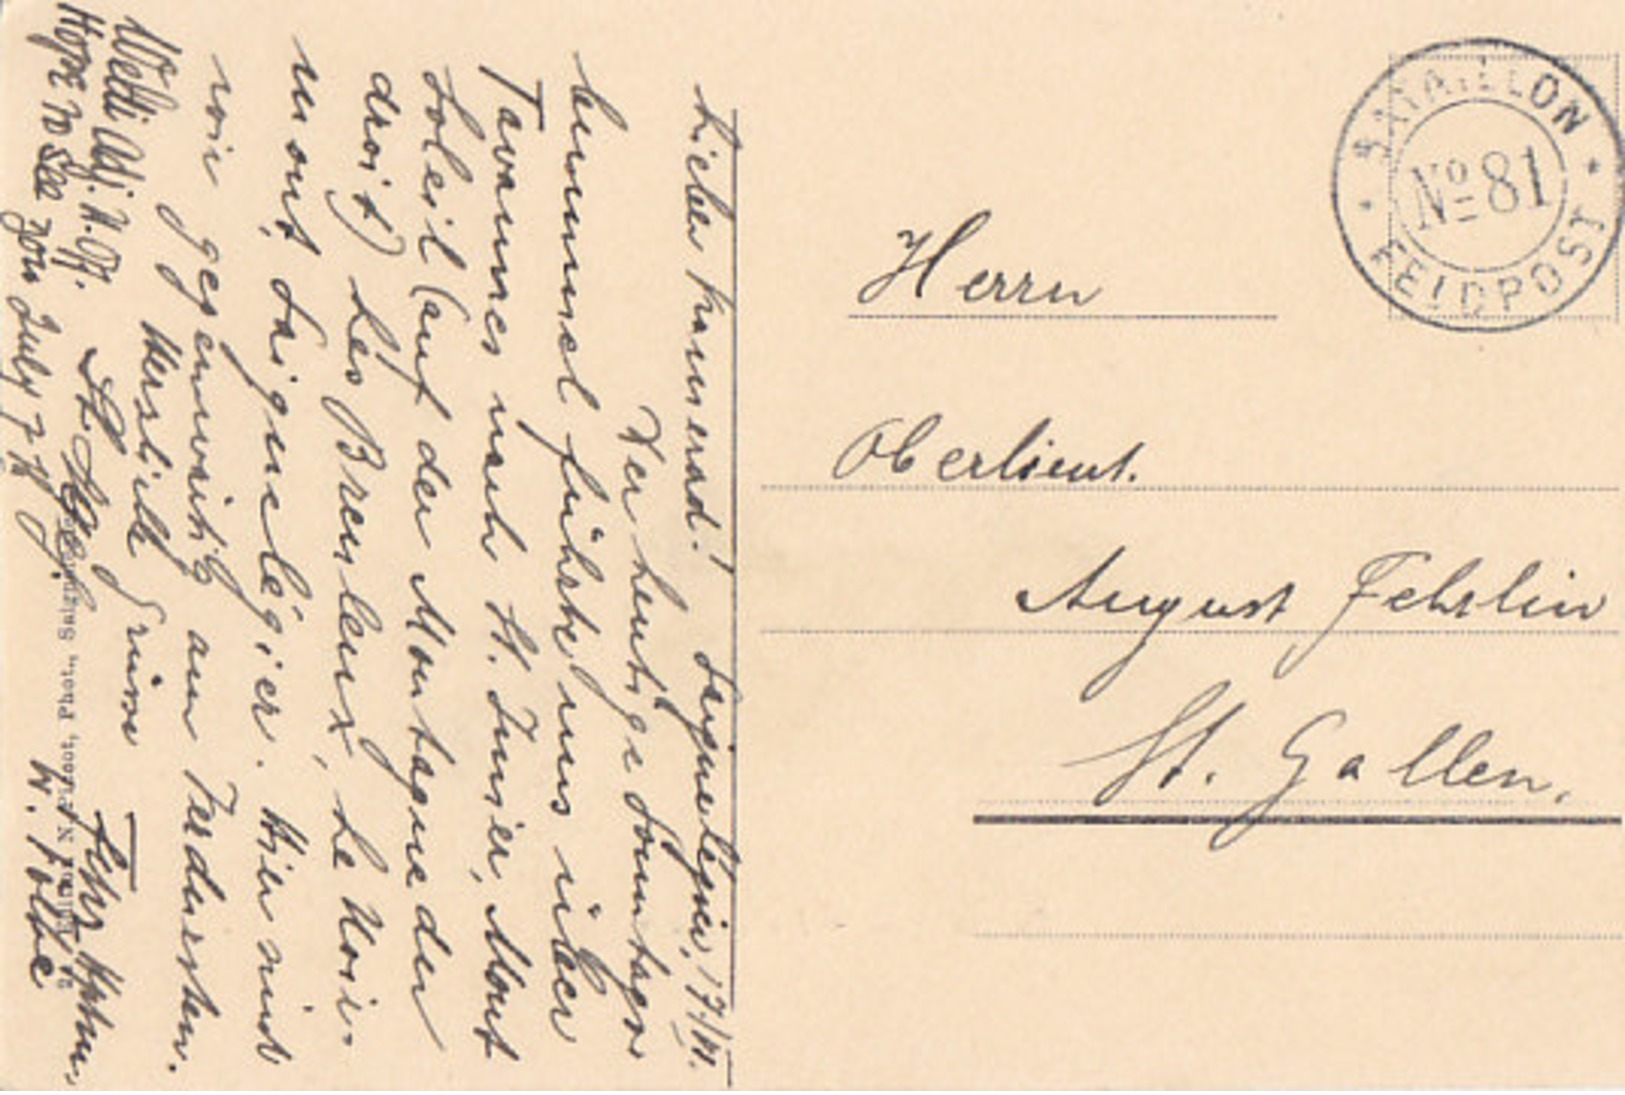 Lieber Kamerad! Saignelégier, 17./VI.
Der heutige Sonntags-
bummel führte uns über
Tavannes nach St. Imier, Mont
Soleil (auf der Montagne du
droit) Les Breuleux, Le Noir-
mont, Saignelégier. Hier sind
wir gegenwärtig am Verdursten.
Herzliche Grüsse
Fehr Hptm.
Welti Adj. U. Off.
W. Kolbe
BATAILLON
No 81
FELDPOST
Herrn
Oberlieut.
August Fehrlin
St. Gallen.